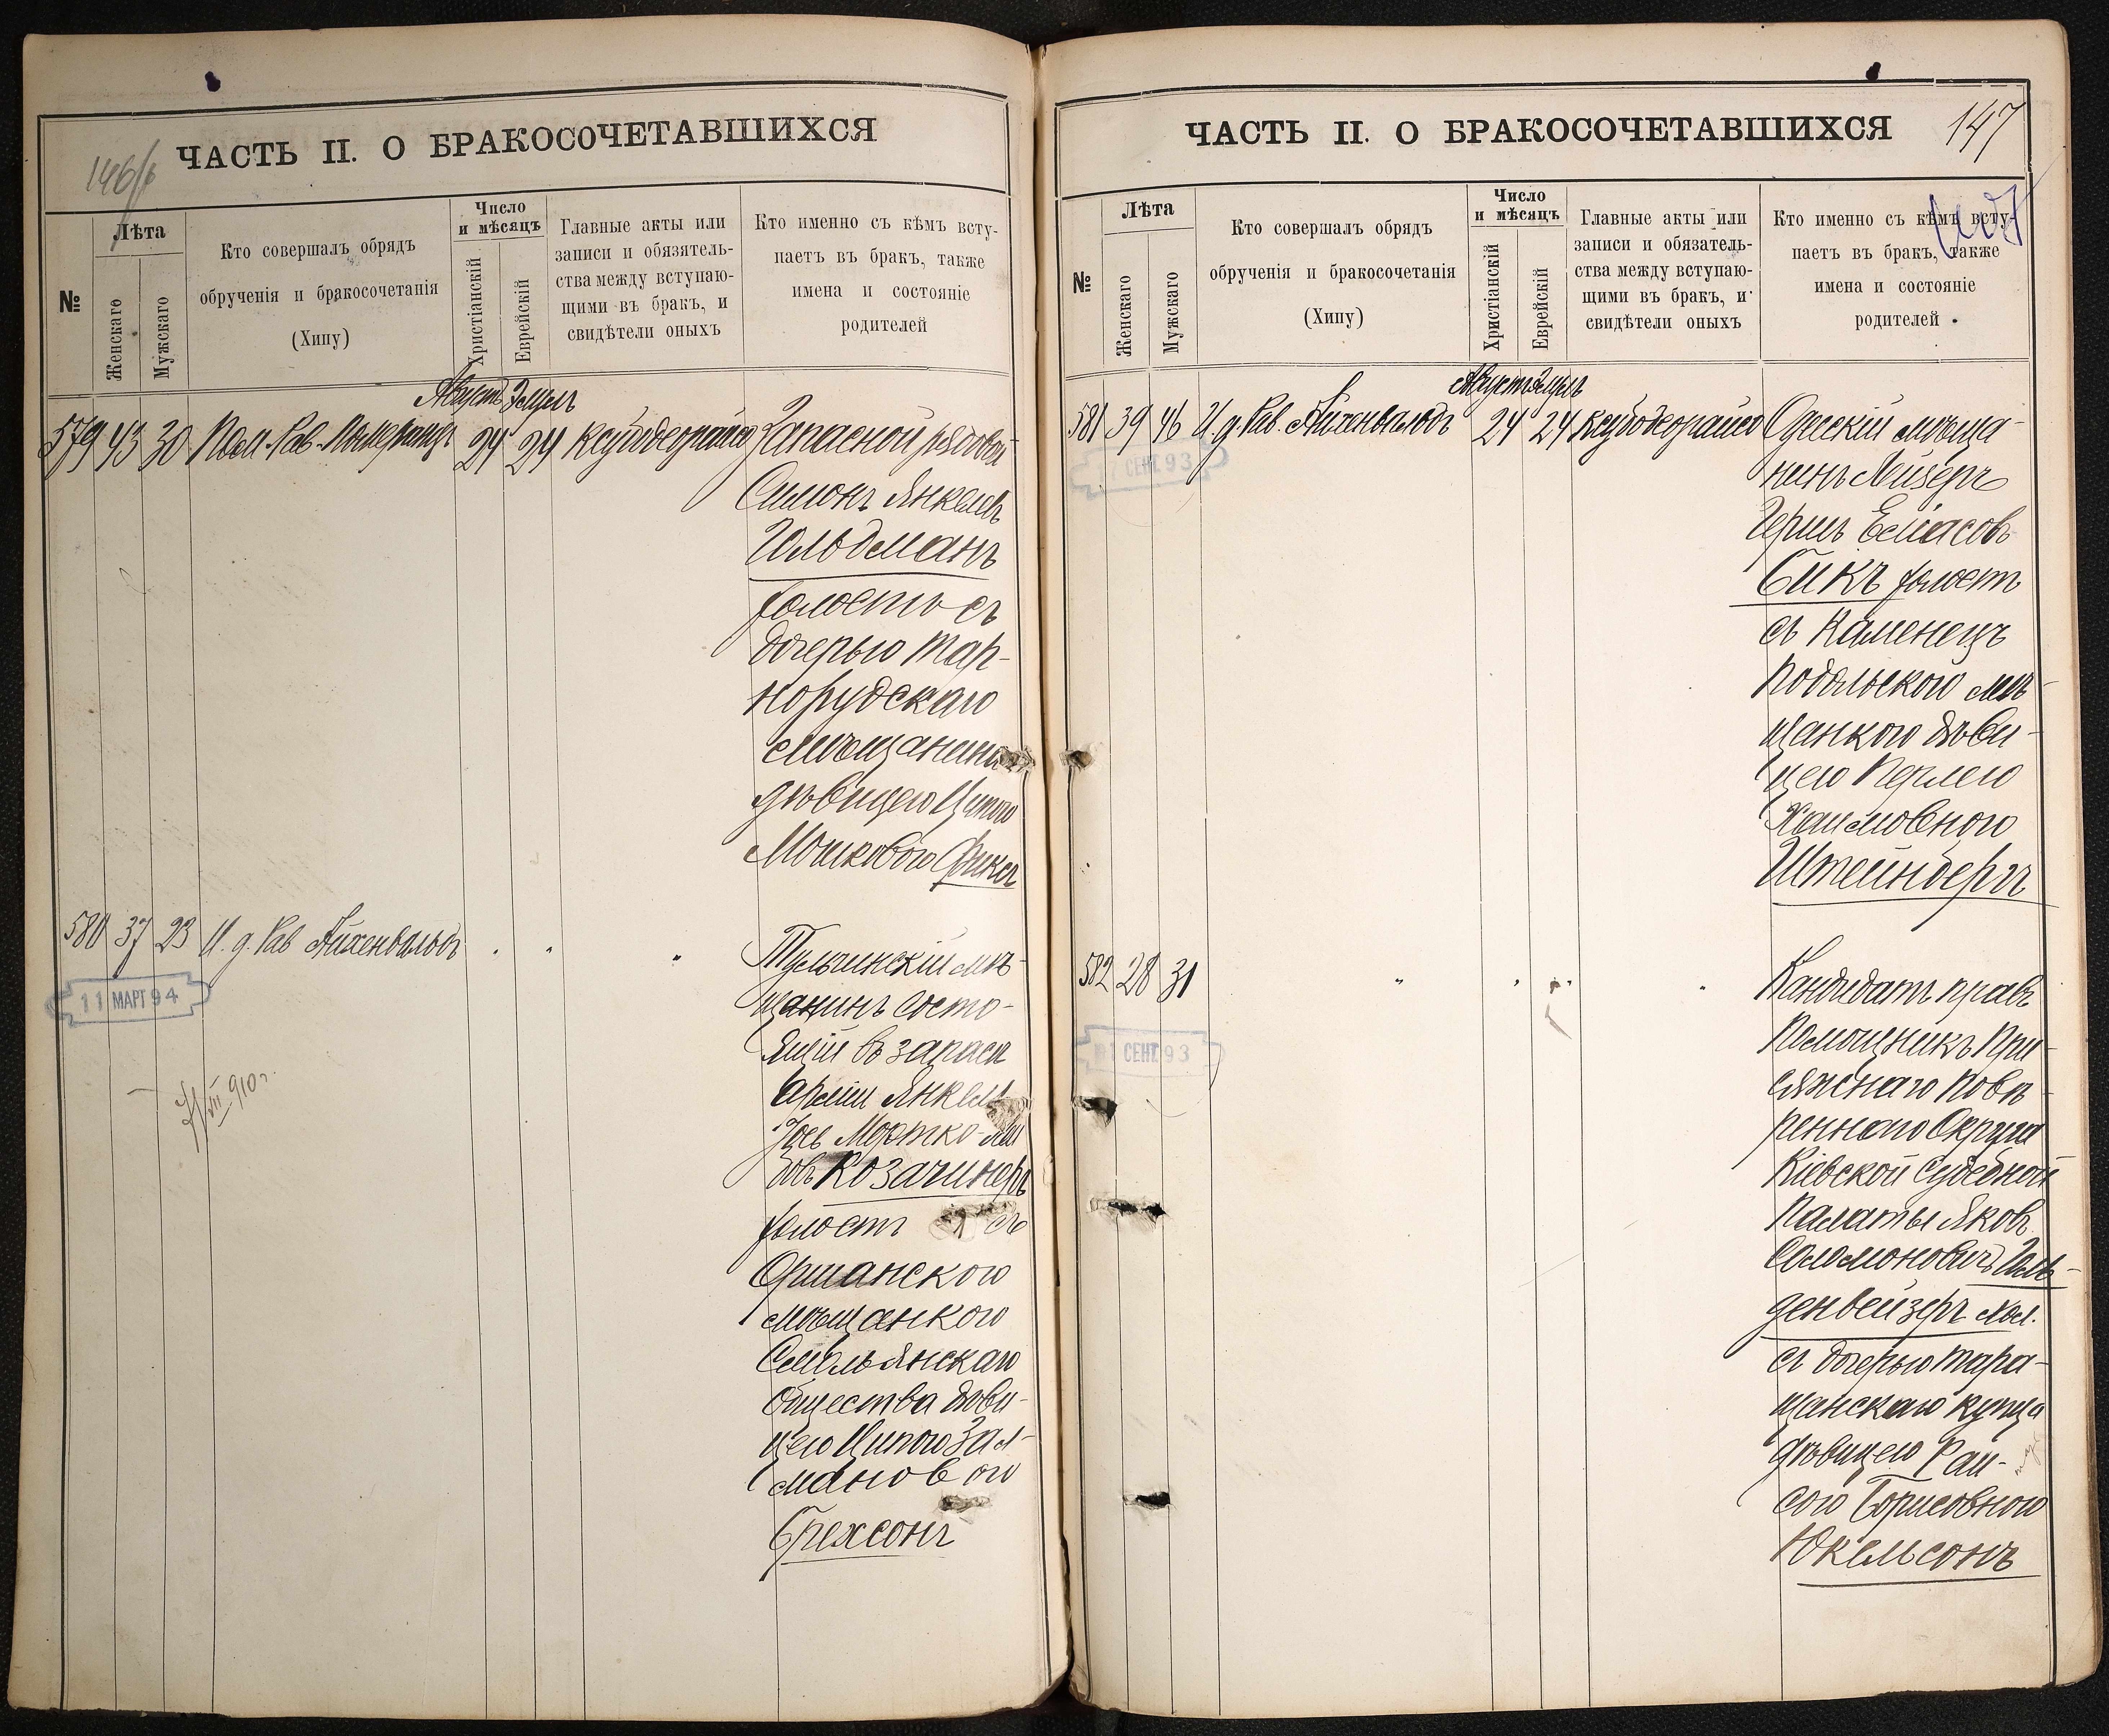 146/б
ЧАСТЬ II. О БРАКОСОЧЕТАВШИХСЯ
№
Лѣта
Женскаго
Мужскаго
Кто совершалъ обрядъ
обрученія и бракосочетанія
(Хипу)
Число
и мѣсяцъ
Христіанскій
Еврейскій
Главные акты или
записи и обязятель-
ства между вступаю-
щими въ бракъ, и
свидѣтели оныхъ
Кто именно съ кѣмъ всту-
паетъ въ бракъ, также
имена и состояніе
родителей
Августъ Элулъ
579 43 30 Пом. Рав. Померанцъ 24 24 Ксубодеорайсо Запасной рядовой
Симонъ Янкелевъ
Гольдманъ
холостъ съ
дочерью Тар-
норудскаго
мѣщанина
дѣвицею Ципою
Мошковою Фиксъ
580 37 23 И. д. Рав Айхенвальдъ " " " Тульчинскій мѣ-
щанинъ состо-
ящій въ запасѣ
арміи Янкель
Іось Мортко-Лей
бовъ Козачинеръ
холостъ съ
Оршанскою
мѣщанкою
Смольянскаго
Общества дѣви-
цею Ципою Зал-
мановою
Брехсонъ
11 МАРТ 94
7/VIII 910 г.
147
ЧАСТЬ II. О БРАКОСОЧЕТАВШИХСЯ
№
Лѣта
Женскаго
Мужскаго
Кто совершалъ обрядъ
обрученія и бракосочетанія
(Хипу)
Число
и мѣсяцъ
Христіанскій
Еврейскій
Главные акты или
записи и обязатель-
ства между вступаю-
щими въ бракъ, и
свидѣтели оныхъ
Кто именно съ кѣмъ всту-
паетъ въ бракъ, также
имена и состояніе
родителей
Августъ Элулъ
581 39 46 И. д. Рав. Айхенвальдъ 24 24 Ксубодеорайсо Одесскій мѣща-
нинъ Лейзеръ
Гершъ Елиасовъ
Бикъ холостъ
съ Каменецъ
Подольскою мѣ-
щанкою дѣви-
цею Перлею
Хаимовною
Штейнбергъ
СЕНТ. 93
582 28 31 " " " " Кандидатъ правъ
Помощникъ При-
сяжнаго Повѣ-
реннаго Округа
Кіевской Судебной
Палаты Яковъ
СоломоновичъГоль-
денвейзеръ хол.
съ дочерью Тара-
щанскаго купца
дѣвицею Раи-
сою Борисовною
Юкельсонъ
СЕНТ. 93